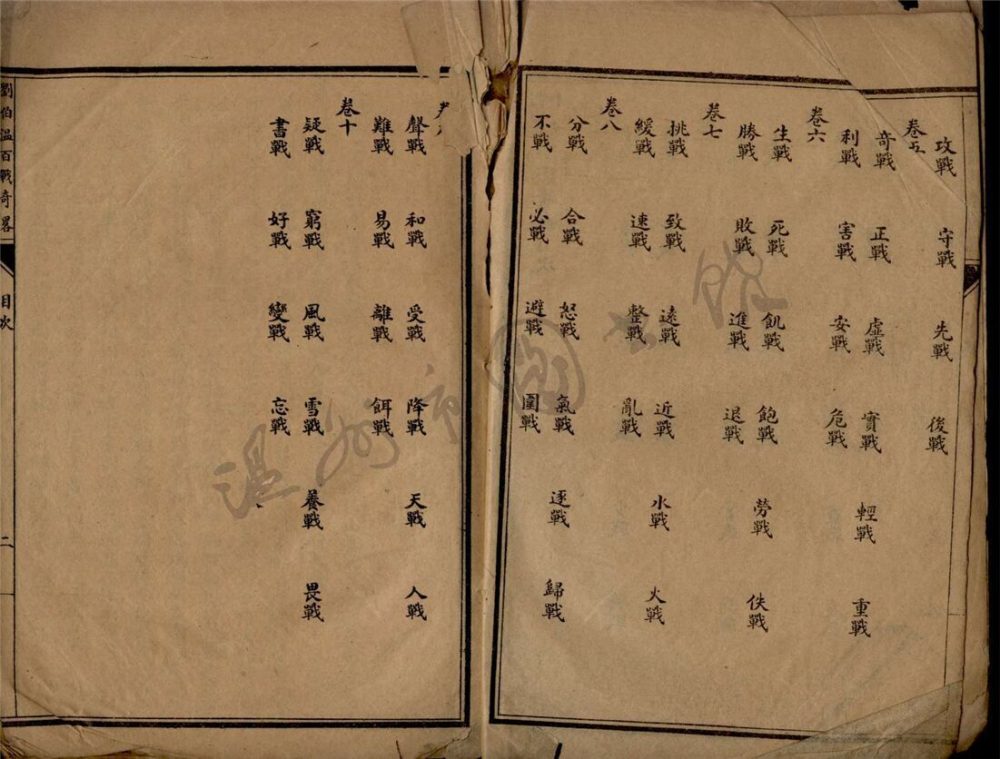 攻戰 守戰 先戰 後戰
卷五
奇戰 正戰 虛戰 實戰 輕戰 重戰
利戰 害戰 安戰 危戰
卷六
生戰 死戰 飢戰 飽戰 勞戰 佚戰
勝戰 敗戰 進戰 退戰
卷七
挑戰 致戰 遠戰 近戰 水戰 火戰
緩戰 速戰 整戰 亂戰
卷八
分戰 合戰 怒戰 氣戰 逐戰 歸戰
不戰 必戰 避戰 圍戰
聲戰 和戰 受戰 降戰 天戰 人戰
難戰 易戰 離戰 餌戰
卷十
疑戰 窮戰 風戰 雪戰 養戰 畏戰
書戰 好戰 變戰 忘戰
劉伯溫百戰奇畧 目次 二
溫州市圖書館